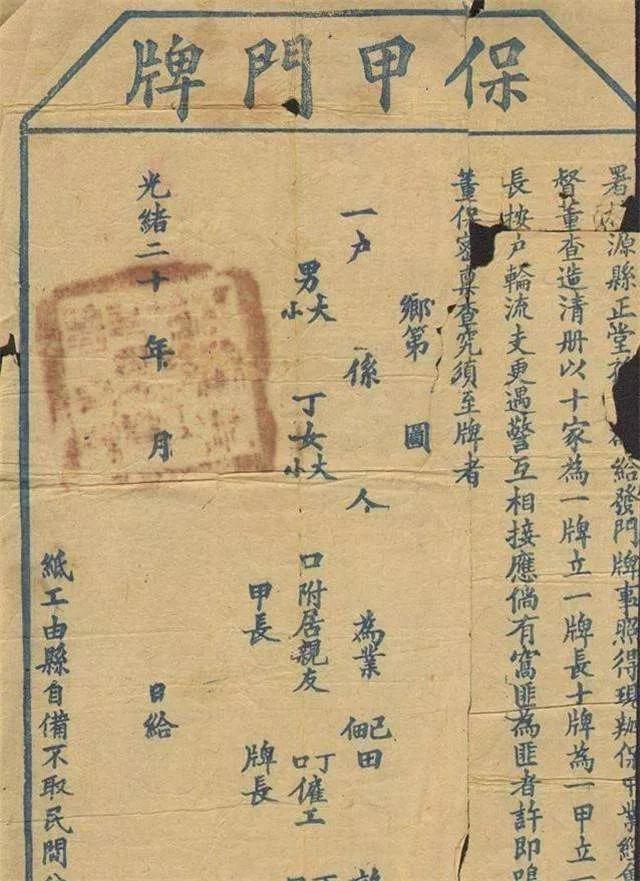 保甲門牌
署 源縣正堂 給發門牌事照得現辦保甲業經
督董查造清册以十家為一牌立一牌長十牌為一甲立一
長按户輪流支更遇警互相接應倘有窩匪為匪者許即鳴
董保密稟查究須至牌者
鄉第 圖
一户 係 人 為業 己田 佃
男大小 丁女大小 口附居親友 丁口僱工
甲長 牌長
光緒二十 年 月 日給
紙工由縣自備不取民間